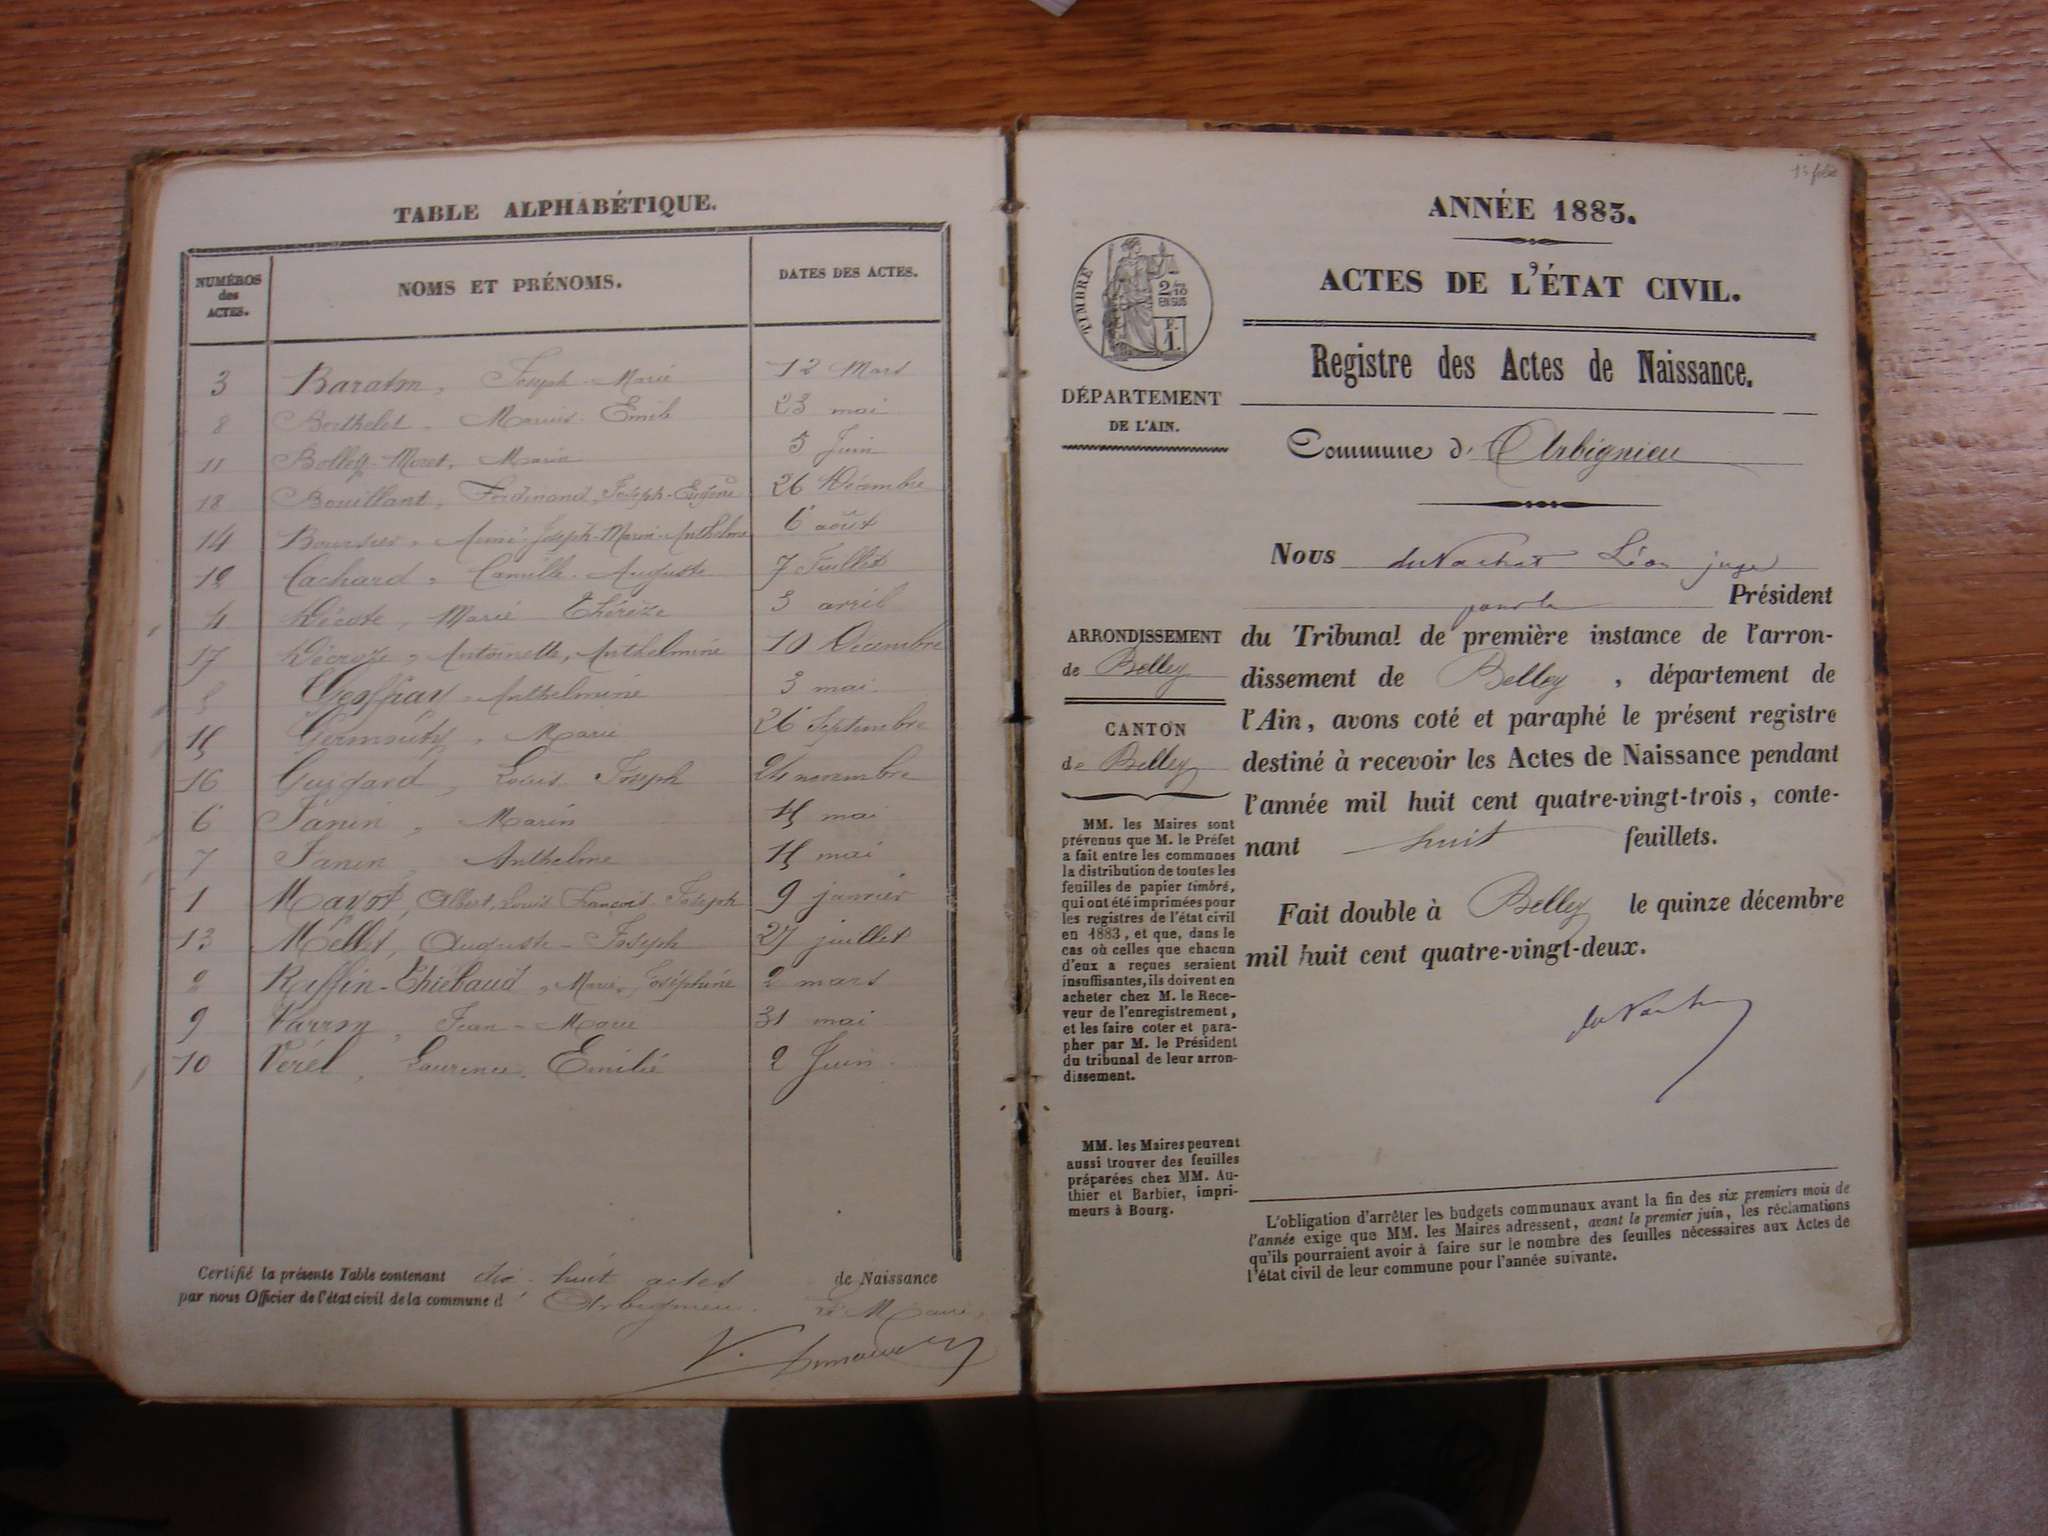 TABLE ALPHABÉTIQUE.
NUMÉROS des ACTES. NOMS ET PRÉNOMS. DATES DES ACTES.
3 Joseph-Marie 12 Mars
8 Berthelet, Marius-Emile 23 mai
11 Marie 5 Juin
18 Bouillant, Ferdinand, Joseph-Eugène 26 Décembre
14 Aimé-Joseph-Marie-Anthelme 6 août
12 Cachard, Camille-Auguste 7 Juillet
4 Décote, Marie Thérèze 3 avril
17 Antoinette, Anthelmine 10 Décembre
Anthelmine 3 mai
15 Marie 26 Septembre
16 Louis Joseph 24 novembre
6 Janin, Marie 15 mai
7 Janin, Anthelme 15 mai
1 Albert, Louis François Joseph 9 janvier
13 Mellet, Auguste-Joseph 27 juillet
2 Ruffin-Thiébaud, Marie, Joséphine 2 mars
9 Jean-Marie 31 mai
10 Vérel, Laurence Emilie 2 Juin
Certifié la présente Table contenant dix-huit actes de Naissance
par nous Officier de l'état civil de la commune d Arbignieu. le Maire,
ANNÉE 1883.
ACTES DE L'ÉTAT CIVIL.
Registre des Actes de Naissance.
TIMBRE
2/10
EN SUS
F.
1.
DÉPARTEMENT
DE L'AIN.
Commune d' Arbignieu
Nous duVachat Léon juge
Président
du Tribunal de première instance de l'arron-
dissement de Belley, département de
l'Ain, avons coté et paraphé le présent registre
destiné à recevoir les Actes de Naissance pendant
l'année mil huit cent quatre-vingt-trois, conte-
nant huit feuillets.
Fait double à Belley le quinze décembre
mil huit cent quatre-vingt-deux.
duVachat
ARRONDISSEMENT
de Belley
CANTON
de Belley
MM. les Maires sont
prévenus que M. le Préfet
a fait entre les communes
la distribution de toutes les
feuilles de papier timbré,
qui ont été imprimées pour
les registres de l'état civil
en 1883, et que, dans le
cas où celles que chacun
d'eux a reçues seraient
insuffisantes, ils doivent en
acheter chez M. le Rece-
veur de l'enregistrement,
et les faire coter et para-
pher par M. le Président
du tribunal de leur arron-
dissement.
MM. les Maires peuvent
aussi trouver des feuilles
préparées chez MM. Au-
thier et Barbier, impri-
meurs à Bourg.
L'obligation d'arrêter les budgets communaux avant la fin des six premiers mois de
l'année exige que MM. les Maires adressent, avant le premier juin, les réclamations
qu'ils pourraient avoir à faire sur le nombre des feuilles nécessaires aux Actes de
l'état civil de leur commune pour l'année suivante.